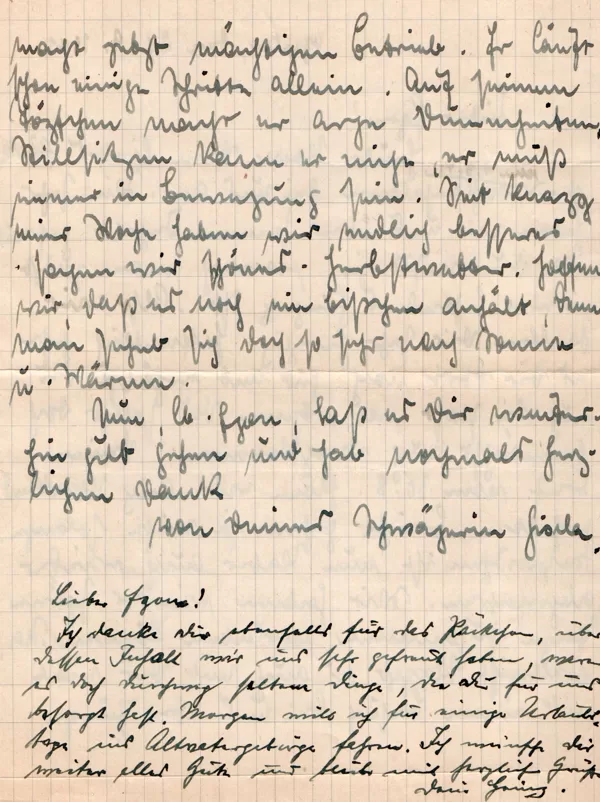 macht jetzt mächtigen Betrieb. Er läuft
schon einige Schritte allein. Auf seinem
Töpfchen macht er arge Dummheiten,
Stillsitzen kann er nicht, er muß
immer in Bewegung sein. Seit knapp
einer Woche haben wir endlich besseres
sagen wir schönes Herbstwetter. Hoffen
wir, daß es noch ein bißchen anhält, denn
man sehnt sich doch so sehr nach Sonne
u. Wärme.
Nun, lb. Egon, laß es Dir weiter-
hin gut gehen und hab nochmals herz-
lichen Dank
von Deiner Schwägerin Gisela.
Lieber Egon!
Ich danke Dir ebenfalls für das Päckchen, über
dessen Inhalt wir uns sehr gefreut haben, waren
es doch durchweg seltene Dinge, die Du für uns
besorgt hast. Morgen will ich für einige Urlaubs-
tage ins Altvatergebirge fahren. Ich wünsche Dir
weiter alles Gute und bleibe mit herzlichen Grüßen
Dein Heinz.